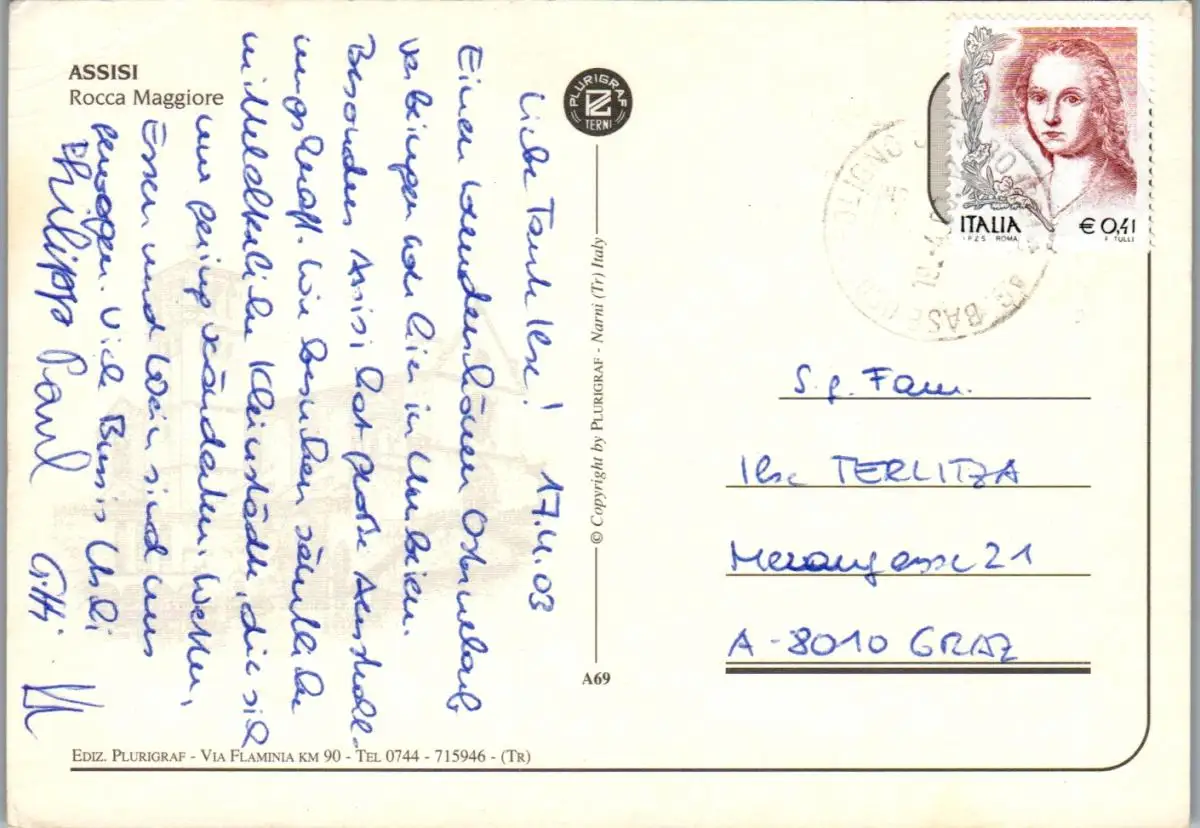 ASSISI
Rocca Maggiore
Liebe Tante Ilse! 17.4.03
Einen wunderschönen Osterurlaub
verbringen wir hier in Umbrien.
Besonders Assisi hat große Ausstrahl-
ungskraft. Wir besuchen sämtliche
mittelalterliche Kleinstädte, die sich
nur gering verändern. Wetter,
Essen und Wein sind uns
gewogen. Viele Bussis Uschi
Philipp Paul Gitti
PLURIGRAF
TERNI
© Copyright by PLURIGRAF - Narni (Tr) Italy
A69
ITALIA € 0,41
I.P.Z.S. ROMA F. TULLI
FOLIGNO
S.g. Fam.
Ilse TERLITZA
Merangasse 21
A-8010 GRAZ
EDIZ. PLURIGRAF - VIA FLAMINIA KM 90 - TEL 0744 - 715946 - (TR)